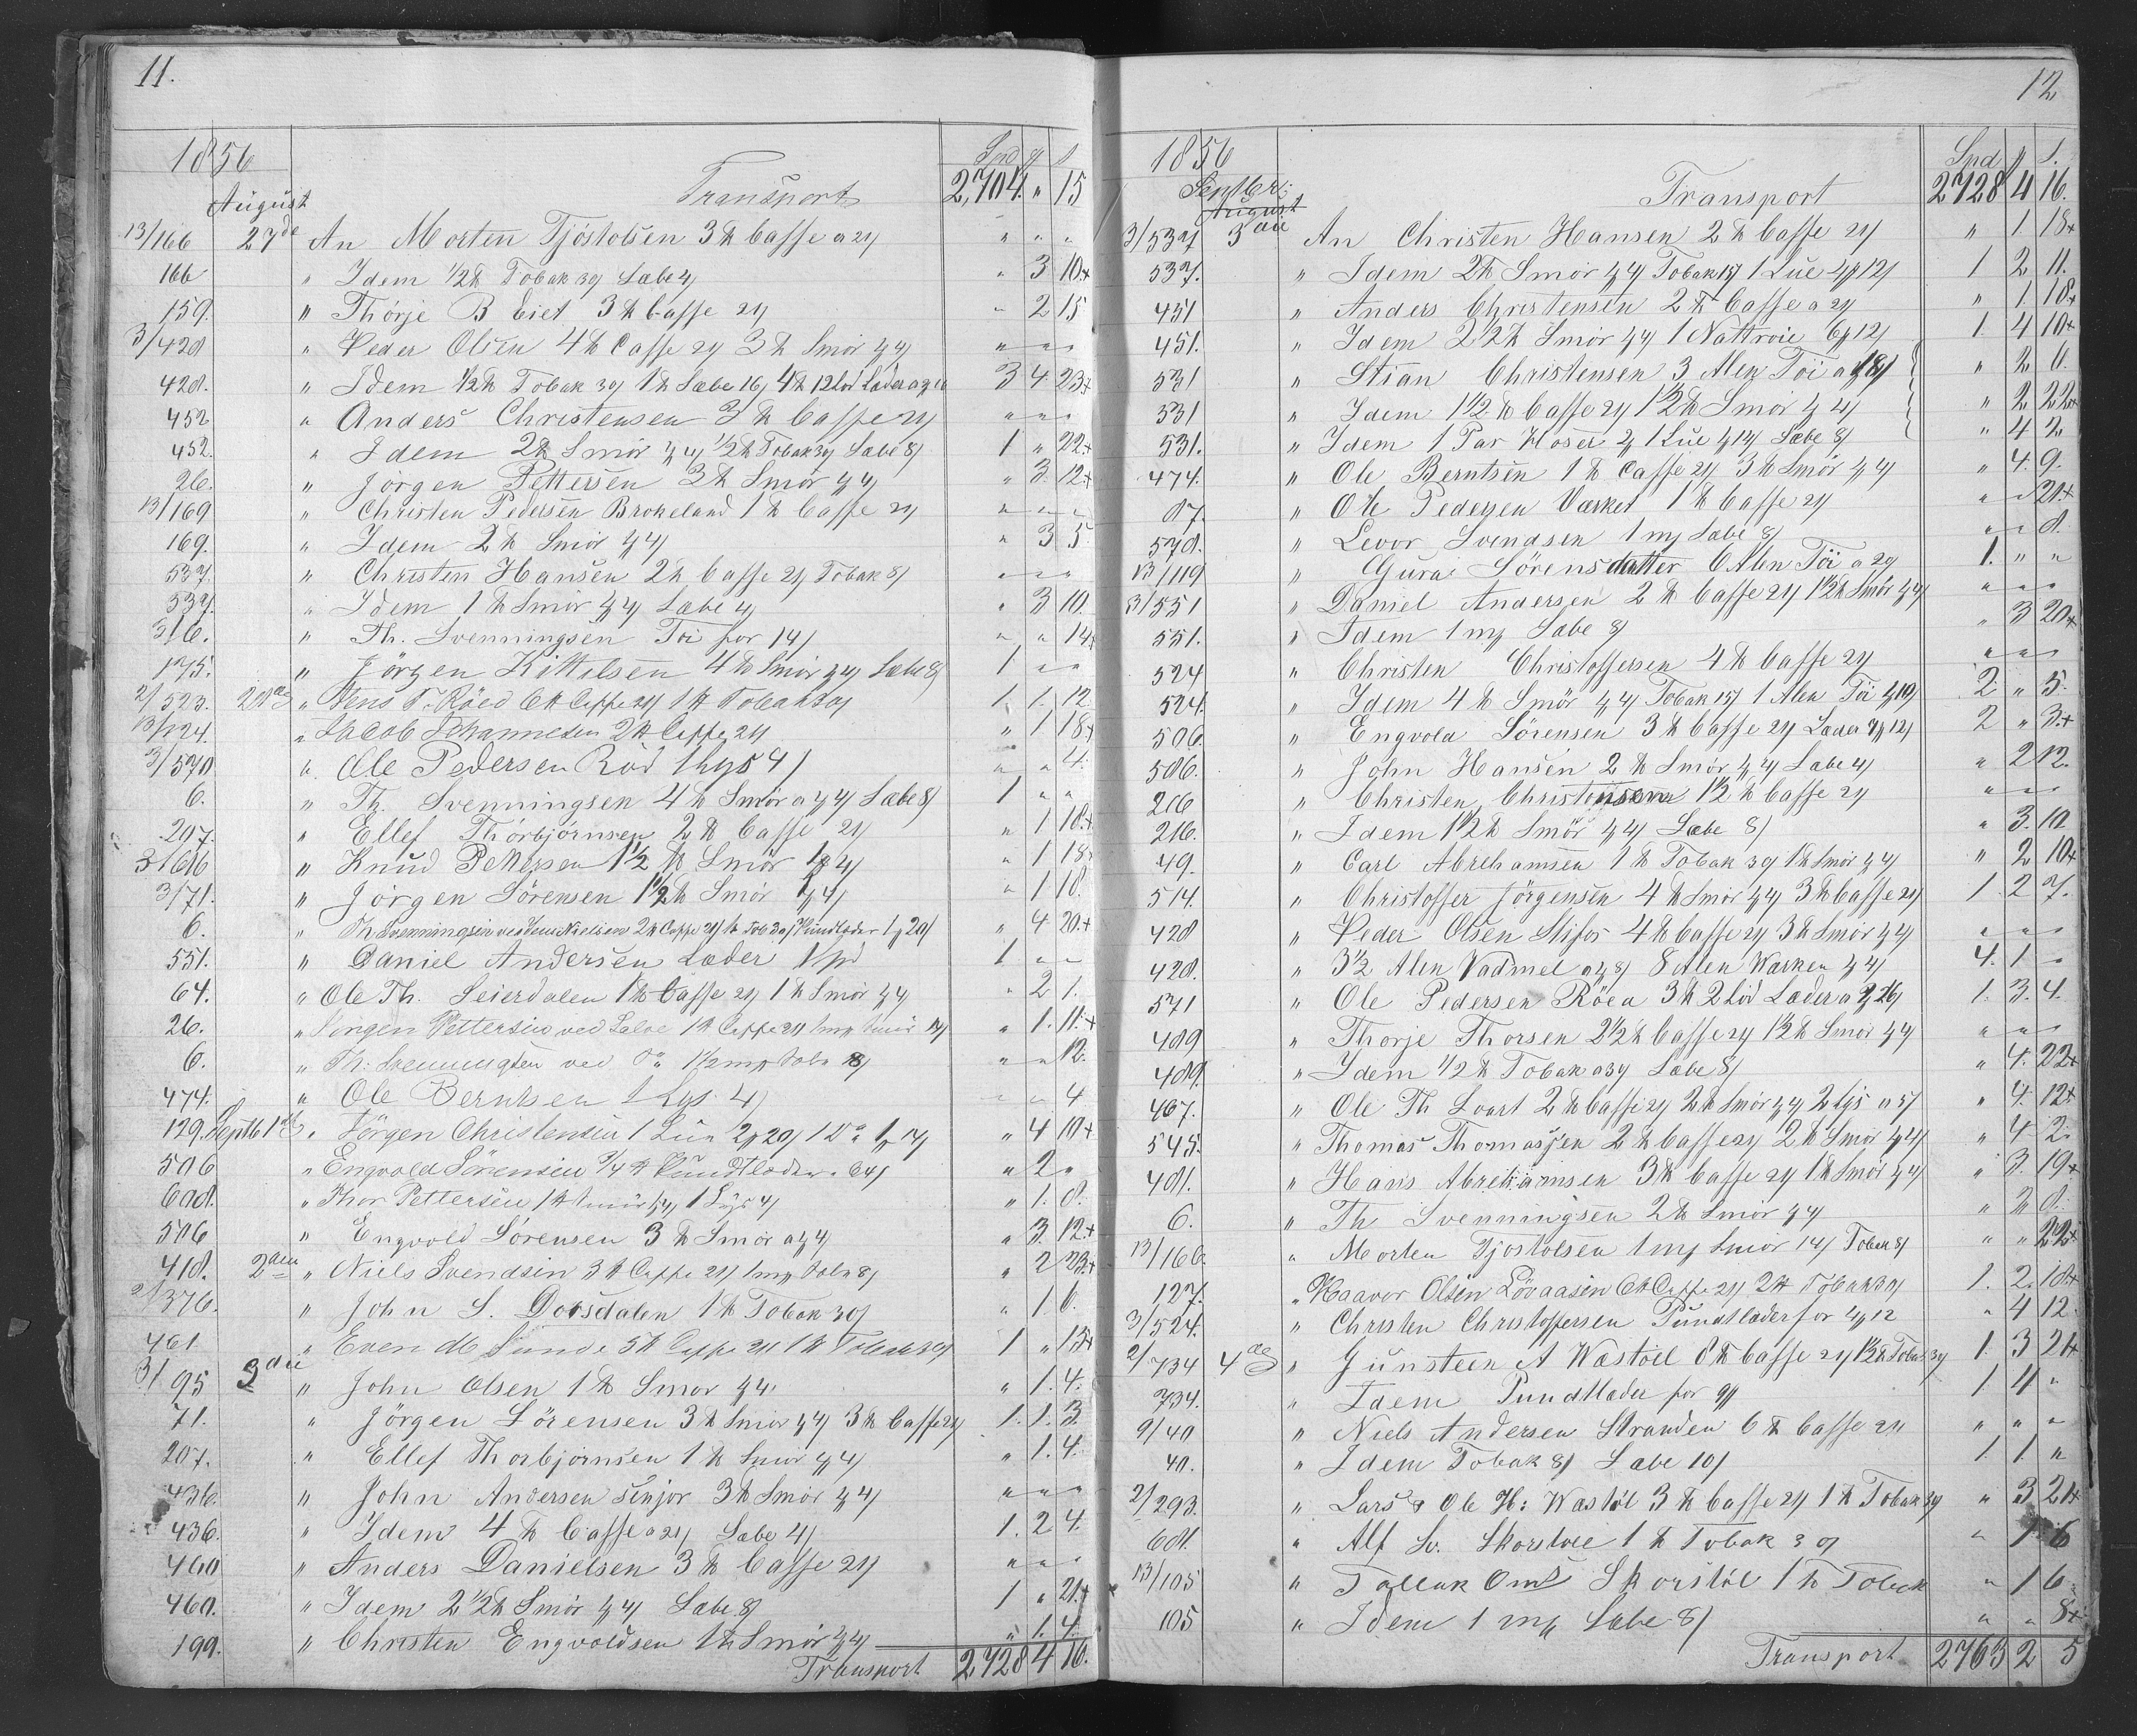 11.
1856 Spd
August Transport 2,704. " 15
13/166 27de An Morten Tjöstolsen 3 ℔ Caffe a 24 " " "
166 " Idem 1/2 ℔ Tobak 39 Sæbe 4 " 3 10+
159. " Thörje B Eiet 3 ℔ Caffe 24 " 2 15
3/428 " Peder Olsen 4 ℔ Caffe 24 3 ℔ Smör " " "
428. " Idem 1/2 ℔ Tobak 39 1 ℔ Sæbe 16 4 ℔ 12 Lod Læder 3 4 23+
452 " Anders Christensen 3 ℔ Caffe 24 " " "
452. " Idem 2 ℔ Smör 1/2 ℔ Tobak 39 Sæbe 8 1 " 22+
26. " Jörgen Pettersen 3 ℔ Smör " 3. 12+
13/169 " Christen Pedersen Brokeland 1 ℔ Caffe 24 " " "
169. " Idem 2 ℔ Smör " 3 5
537. " Christen Hansen 2 ℔ Caffe 24 Tobak 8 " " "
537. " Idem 1 ℔ Smör Sæbe 4 " 3 10.
316. " Th. Svenningsen Töi for 14 " " 14+
175. " Jörgen Kittilsen 4 ℔ Smör Sæbe 8 1 " "
2/523. 28de " Jens T. Röed 6 ℔ Caffe 24 1 ℔ Tobak 39 1. 1. 12
13/124. " Jacob Johannesen 2 ℔ Caffe 24 " 1 18+
3/570 " Ole Pedersen Röd 1 Lys 4 " " 4.
6. " Th. Svenningsen 4 ℔ Smör a Sæbe 8 1 " "
207. " Ellef Thorbjörnsen 2 ℔ Caffe 24 " 1 18+
3/616 " Knud Pettersen 1 1/2 ℔ Smör " 1 18
3/71. " Jörgen Sörensen 1 1/2 ℔ Smör " 1 18.
6. " Th Svenningsen ved Jens Nielsen 2 ℔ Caffe 24 Tob 39 Pundlæder " 4 20+
551. " Daniel Andersen Læder 1 Spd 1 " "
64. " Ole Th. Seierdalen 1 ℔ Caffe 24 1 ℔ Smör " 2 1.
26. " Jörgen Pettersen ved 1 ℔ Caffe 24 Smör " 1. 11.+
6. " Th: Svenningsen ved Do 1 1/2 Sæbe 8 " " 12.
474. " Ole Berntsen 1 Lys 4 " " 4
129. Septb 1ste " Jörgen Christensen 1 Lue 1 Do " 4 10+
506 " Engvold Sörensen 3/4 ℔ Pundtlæder " 2 "
608. " Thor Pettersen 1 ℔ Smör 1 Lys 4 " 1. 8.
506 " Engvold Sörensen 3 ℔ Smör a " 3. 12+
418. 2den " Niels Svendsen 3 ℔ Caffe 24 Sæbe 8 " 2 23+
2/376. " John S. Dorsdalen 1 ℔ Tobak 30 " 1. 6.
461 " Even Sunde 5 ℔ Caffe 24 1 ℔ Tobak 39 1 " 15+
3/95 3die " John Olsen 1 ℔ Smör " 1. 4.
71. " Jörgen Sörensen 3 ℔ Smör 3 ℔ Caffe 24 1. 1. 3.
207. " Ellef Thorbjörnsen 1 ℔ Smör " 1. 4.
436. " John Andersen senjor 3 ℔ Smör " " "
436. " Idem 4 ℔ Caffe a 24 Sæbe 4 1. 2 4.
460 " Anders Danielsen 3 ℔ Caffe 24 " " "
460. " Idem 2 1/2 ℔ Smör Sæbe 8 1 " 21+
199. " Christen Engvoldsen 1 ℔ Smör " 1. 4.
Transport 2,728 4 16.
12
1856 Spd
Septbr: Transport 2728 4 16.
August
3/537 3die An Christen Hansen 2 ℔ Caffe 24 " 1 18+
537. " Idem 2 ℔ Smör Tobak 1 Lue 1 2 11.
451 " Anders Christensen 2 ℔ Caffe a 24 " 1. 18+
451. " Idem 2 ℔ Smör 1 Nattroie 1. 4 10+
531 " Stian Christensen 3 Alen Töi " 2 0.
531 " Idem 1 1/2 ℔ Caffe 24 1 1/2 ℔ Smör " 2 22+
531. " Idem 1 Par Hoser 1 Lue Sæbe 8 " 4 2
474. " Ole Berntsen 1 ℔ Caffe 24 3 ℔ Smör " 4. 9.
87. " Ole Pedersen Værket 1 ℔ Caffe 24 " " 21+
578. " Levor Svendsen Sæbe 8 " " 8.
13/119 " Gura Sörensdatter 6 Alen Töi 1. " "
3/551 " Daniel Andersen 2 ℔ Caffe 24 1 1/2 ℔ Smör " " "
551. " Idem Sæbe 8 " 3 20+
524 " Christen Christoffersen 4 ℔ Caffe 24 " " "
524. " Idem 4 ℔ Smör Tobak 1 Alen Töi 2 " 5.
506. " Engvold Sörensen 3 ℔ Caffe 24 Læder 2 " 3+
506. " John Hansen 2 ℔ Smör Sæbe 4 " 2 12.
216 " Christen Christensen 1 1/2 ℔ Caffe 24 " " "
216. " Idem 1 1/2 ℔ Smör Sæbe 8 " 3. 10
49. " Carl Abrehamsen 1 ℔ Tobak 39 1 ℔ Smör " 2 10+
514. " Christoffer Jörgensen 4 ℔ Smör 3 ℔ Caffe 24 1. 2 7.
428 " Peder Olsen 4 ℔ Caffe 24 3 ℔ Smör " " "
428. " 3 1/2 Alen Vadmel 8 Alen Wærken 4. 1 "
571 " Ole Pedersen Röed 3 ℔ 2 Lod Læder a 1. 3. 4.
489 " Thorje Thorsen 2 1/2 ℔ Caffe 24 1 1/2 ℔ Smör " " "
489. " Idem 1/2 ℔ Tobak a 39 Sæbe 8 " 4. 22+
467. " Ole Th Svart 2 ℔ Caffe 24 2 ℔ Smör 2 Lys a 5 " 4. 12+
545. " Thomas Thomassen 2 ℔ Caffe 24 2 ℔ Smör " 4 2
481. " Hans Abrehamsen 3 ℔ Caffe 24 1 ℔ Smör " 3. 19+
6. " Th Svenningsen 2 ℔ Smör " 2 8.
13/166 " Morten Tjostolsen Smör 14 Tobak 8 " " 22+
127. " Haavor Olsen Lövaasen 6 ℔ Caffe 24 2 ℔ Tobak 39 1. 2. 18+
3/524. " Christen Christoffersen Pundtlæder for " 4 12
2/734 4de " Gunsteen A Wastöel 8 ℔ Caffe 24 1 1/2 ℔ Tobak 39 1. 3 21+
734. " Idem Pundtlæder for 1 4 "
9/40 " Niels Andersen Stranden 6 ℔ Caffe 24 " " "
40. " Idem Tobak 8 Sæbe 10 1. 1. "
2/293. " Lars & Ole H: Wastöl 3 ℔ Caffe 24 1 ℔ Tobak 39 " 3 21+
681. " Alf Sv. Skorstöl 1 ℔ Tobak 39 " 1 6
13/105 " Tallak Oms Skorstöl 1 ℔ Tobak " 1 6
105 " Idem Sæbe 8 " " 8+
Transport 2763 2 5